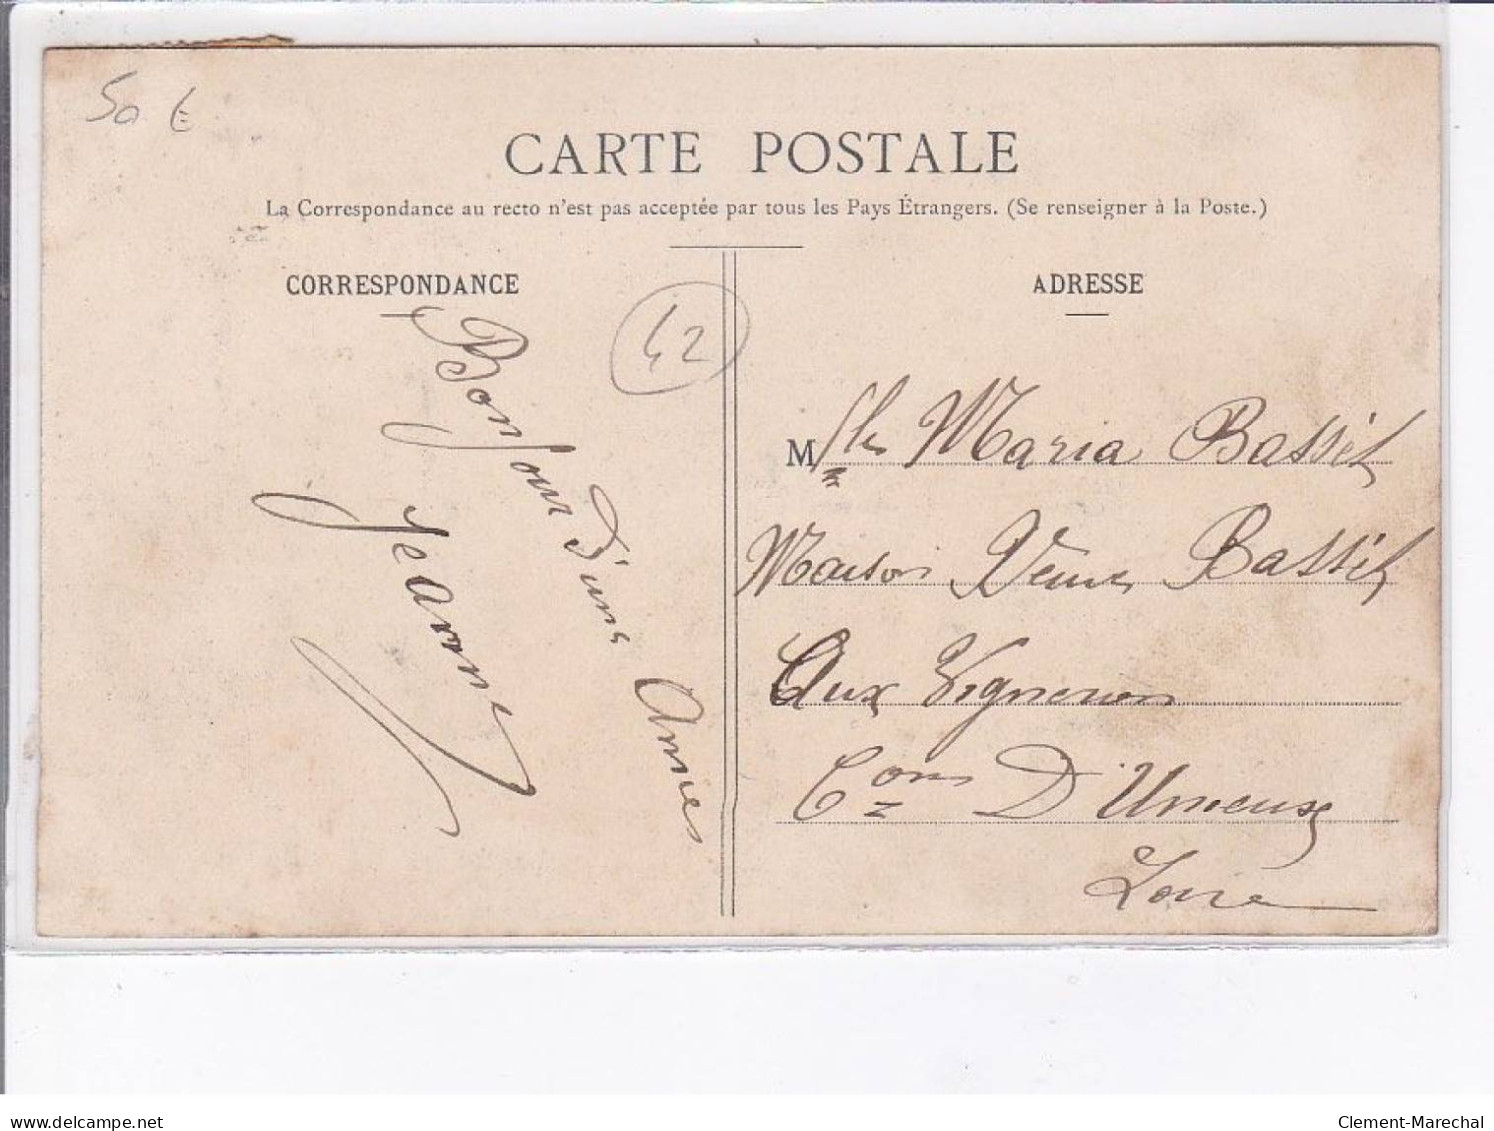 50 €
CARTE POSTALE
La Correspondance au recto n'est pas acceptée par tous les Pays Étrangers. (Se renseigner à la Poste.)
CORRESPONDANCE
42
Bonjour d'une Amies
Jeanne
ADRESSE
Mlle Maria Basset
Maison Veuve Basset
Aux Vigneron
Con D'Unieux
Loire
delcampe.net
Clement-Marechal